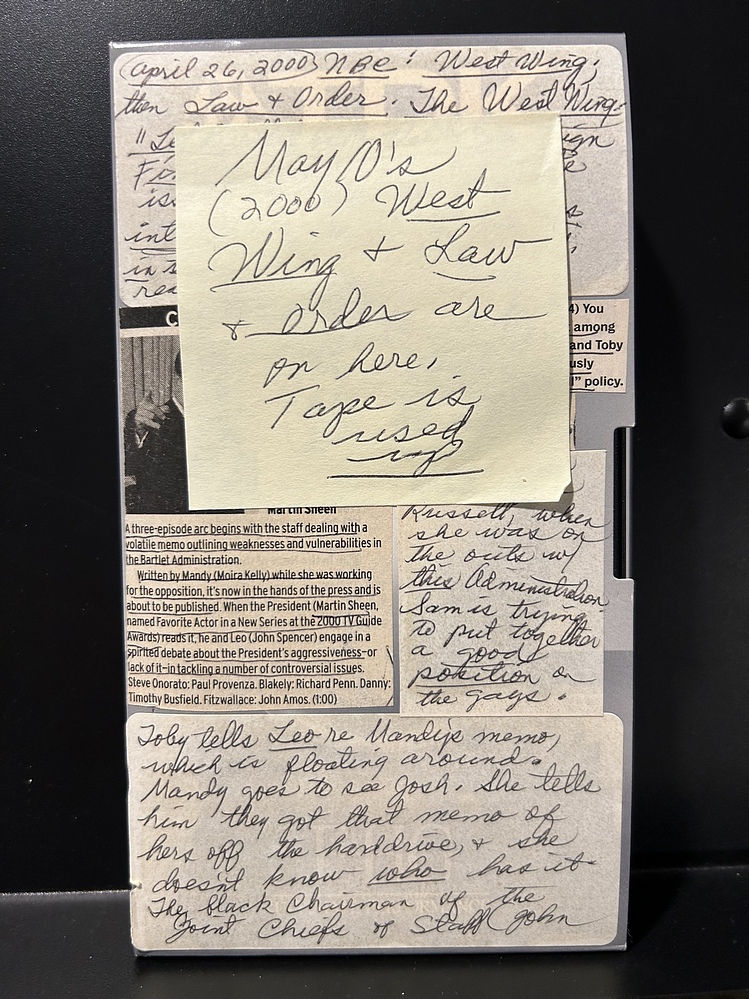 (April 26, 2000) NBC: West Wing,
then Law & Order. The West Wing:
"Le
ign
Fi
iss
int
in s
rea
May 0's
(2000) West
Wing & Law
& Order are
on here.
Tape is
used
up
C
4) You
among
and Toby
usly
l" policy.
Martin Sheen
A three-episode arc begins with the staff dealing with a
volatile memo outlining weaknesses and vulnerabilities in
the Bartlet Administration.
Written by Mandy (Moira Kelly) while she was working
for the opposition, it's now in the hands of the press and is
about to be published. When the President (Martin Sheen,
named Favorite Actor in a New Series at the 2000 TV Guide
Awards) reads it, he and Leo (John Spencer) engage in a
spirited debate about the President's aggressiveness–or
lack of it–in tackling a number of controversial issues.
Steve Onorato: Paul Provenza. Blakely: Richard Penn. Danny:
Timothy Busfield. Fitzwallace: John Amos. (1:00)
Russell, when
she was on
the outs w/
this Administration
Sam is trying
to put together
a good
position on
the gays.
Toby tells Leo re Mandy's memo,
which is floating around.
Mandy goes to see Josh. She tells
him they got that memo of
hers off the harddrive, & she
doesn't know who has it
The black Chairman of the
Joint Chiefs of Staff (John